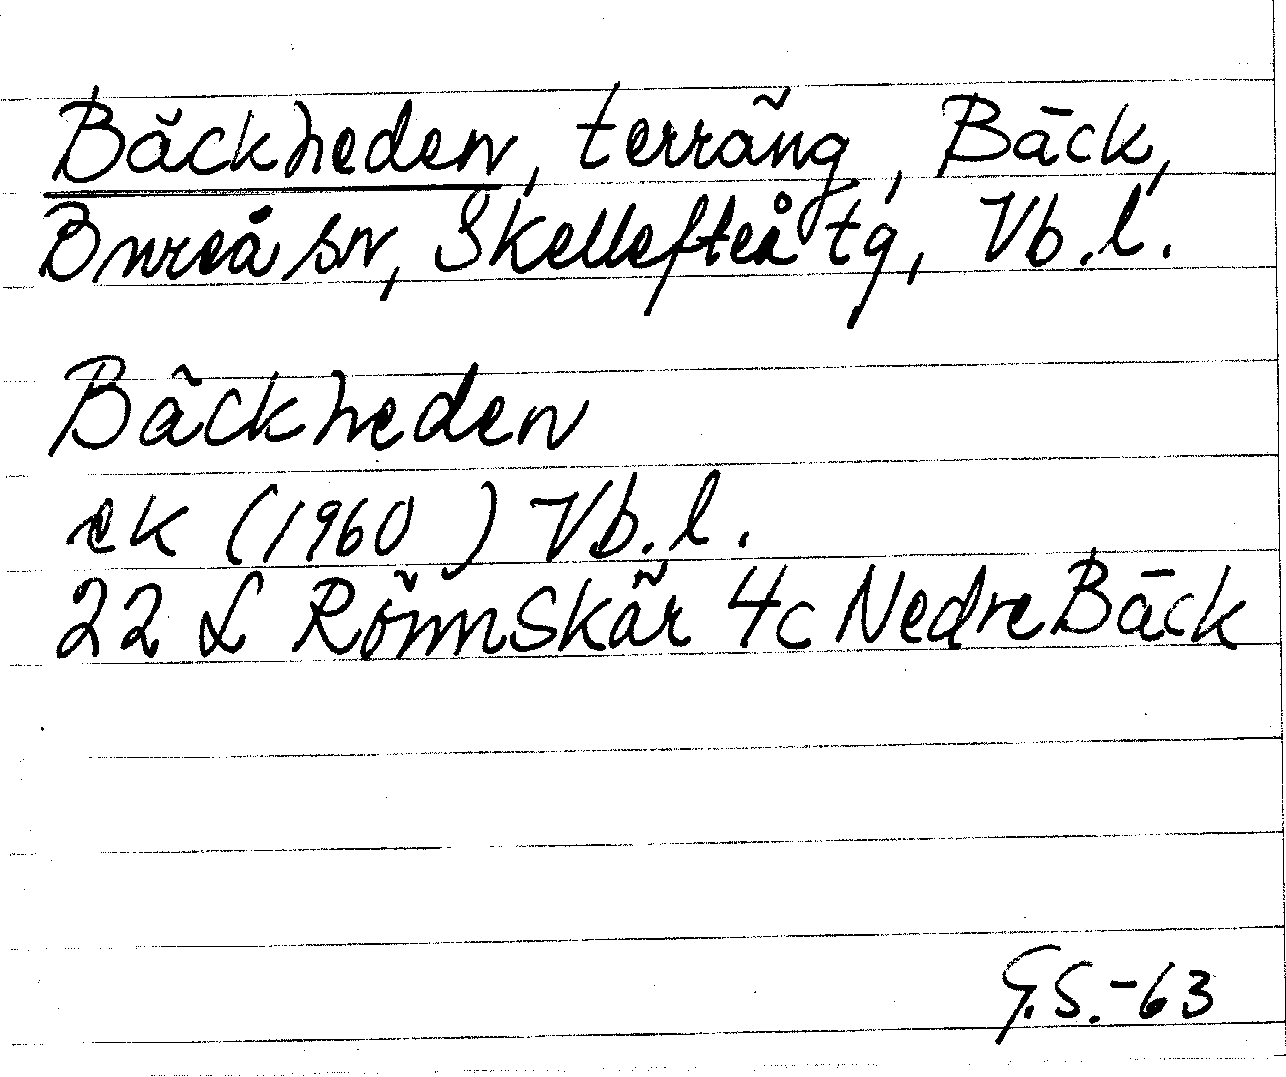 Bäckheden, terräng, Bäck,
Bureå sn, Skellefteå tg, Vb.l.
Bäckheden
ek (1960) Vb.l.
22 L Rönnskär 4c Nedre Bäck
G.S.-63